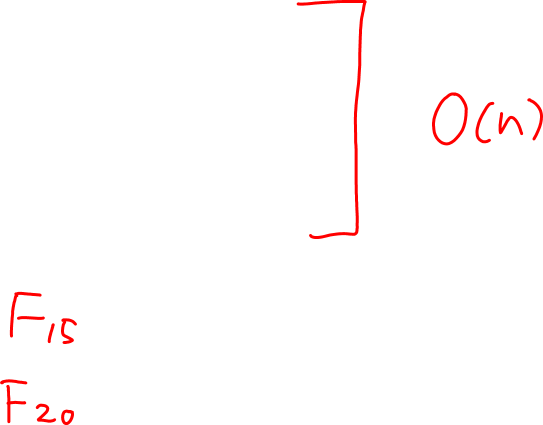 O(n)
F₁₅
F₂₀